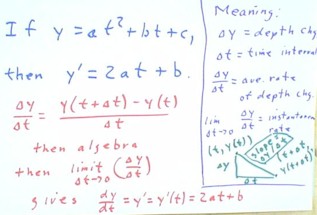 If y = at² + bt + c,
then y' = 2at + b.
Δy/Δt = y(t+Δt) - y(t) / Δt
then algebra
then limit Δt→0 (Δy/Δt)
gives dy/dt = y' = y'(t) = 2at+b
Meaning:
Δy = depth chg
Δt = time interval
Δy/Δt = ave. rate
of depth chg.
lim Δt→0 Δy/Δt = instantaneous
rate
(t, y(t))
slope = Δy/Δt
Δy
(t+Δt,
y(t+Δt))
Δt